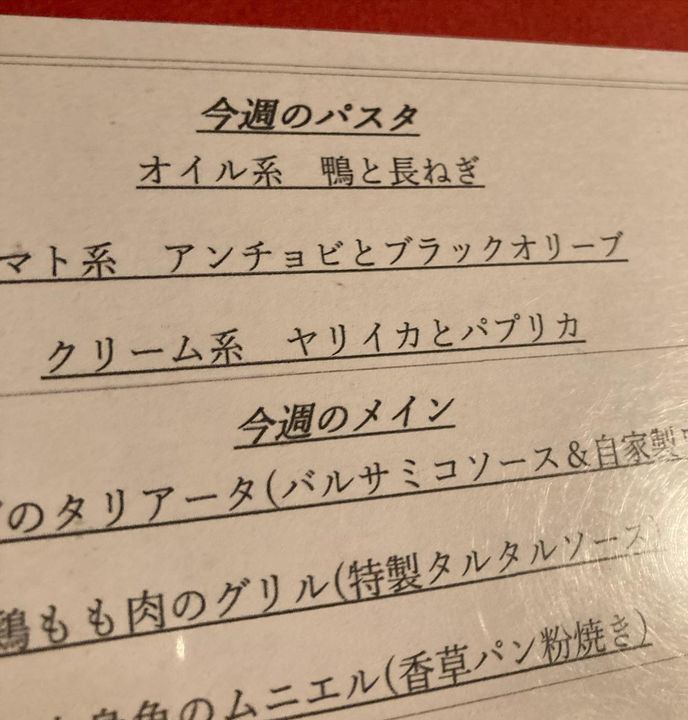 今週のパスタ
オイル系　鴨と長ねぎ
マト系　アンチョビとブラックオリーブ
クリーム系　ヤリイカとパプリカ
今週のメイン
のタリアータ(バルサミコソース＆自家製
鶏もも肉のグリル(特製タルタルソース)
魚のムニエル(香草パン粉焼き)